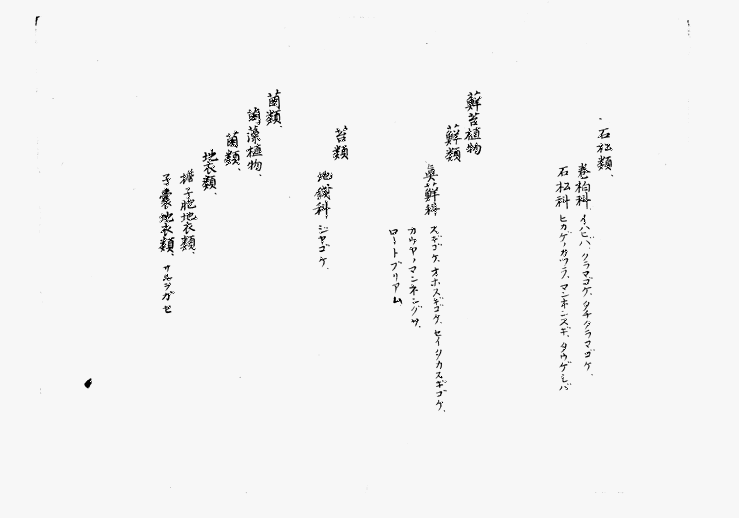 石松類、
卷柏科、イハヒバ、クラマゴケ、タチクラマゴケ、
石松科 ヒカゲノカヅラ、マンネンスギ、タウゲシバ
蘚苔植物
蘚類
眞蘚科 スギゴケ、オホスギゴケ、セイタカスギゴケ、
カウヤノマンネングサ、
ロートブリアム
苔類
地錢科 ジヤゴケ、
菌類、
菌藻植物、
菌類、
地衣類、
擔子胞地衣類、
子囊地衣類、サルヲガセ